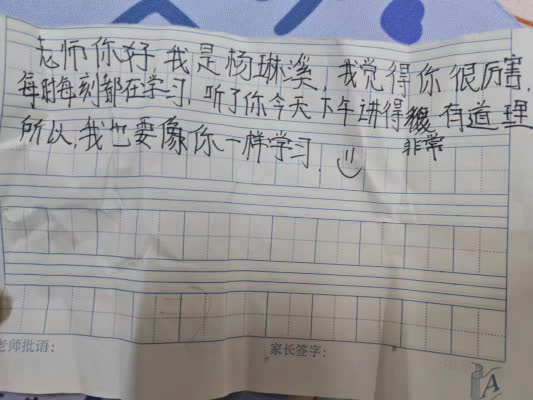 老师你好,我是杨琳溪,我觉得你很厉害.
每时每刻都在学习,听了你今天下午讲得 有道理
非常
所以,我也要像你一样学习.
老师批语:
家长签字:
A